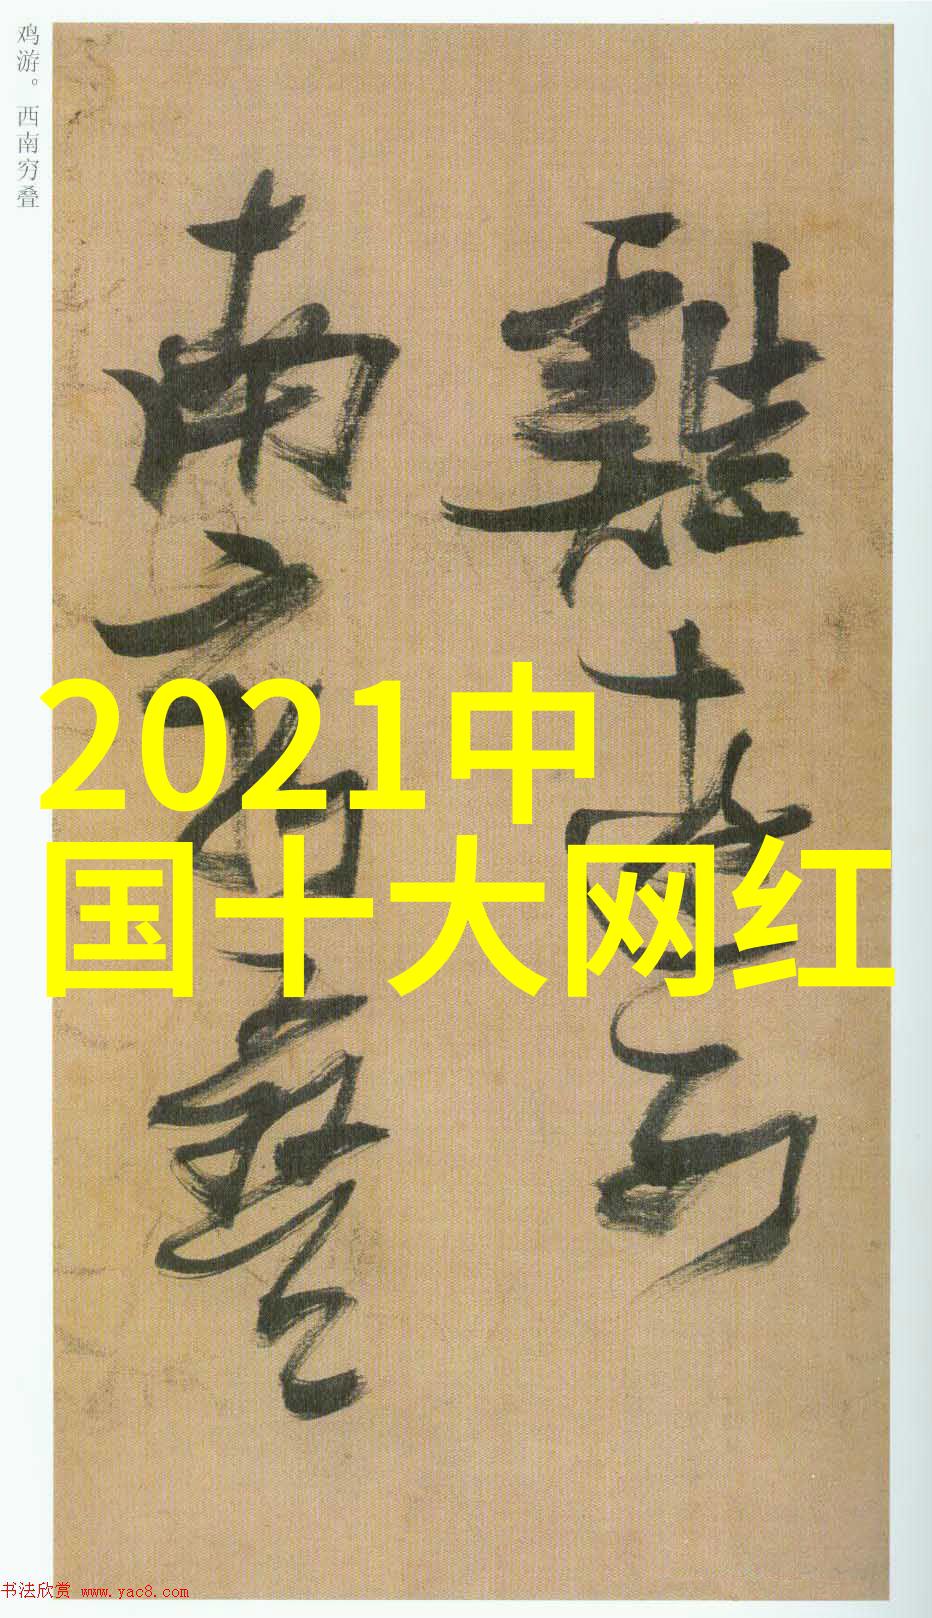 鸡游。西南穷叠
雞游西
南窮疊
2021中
国十大网红
书法欣赏 www.yac8.com